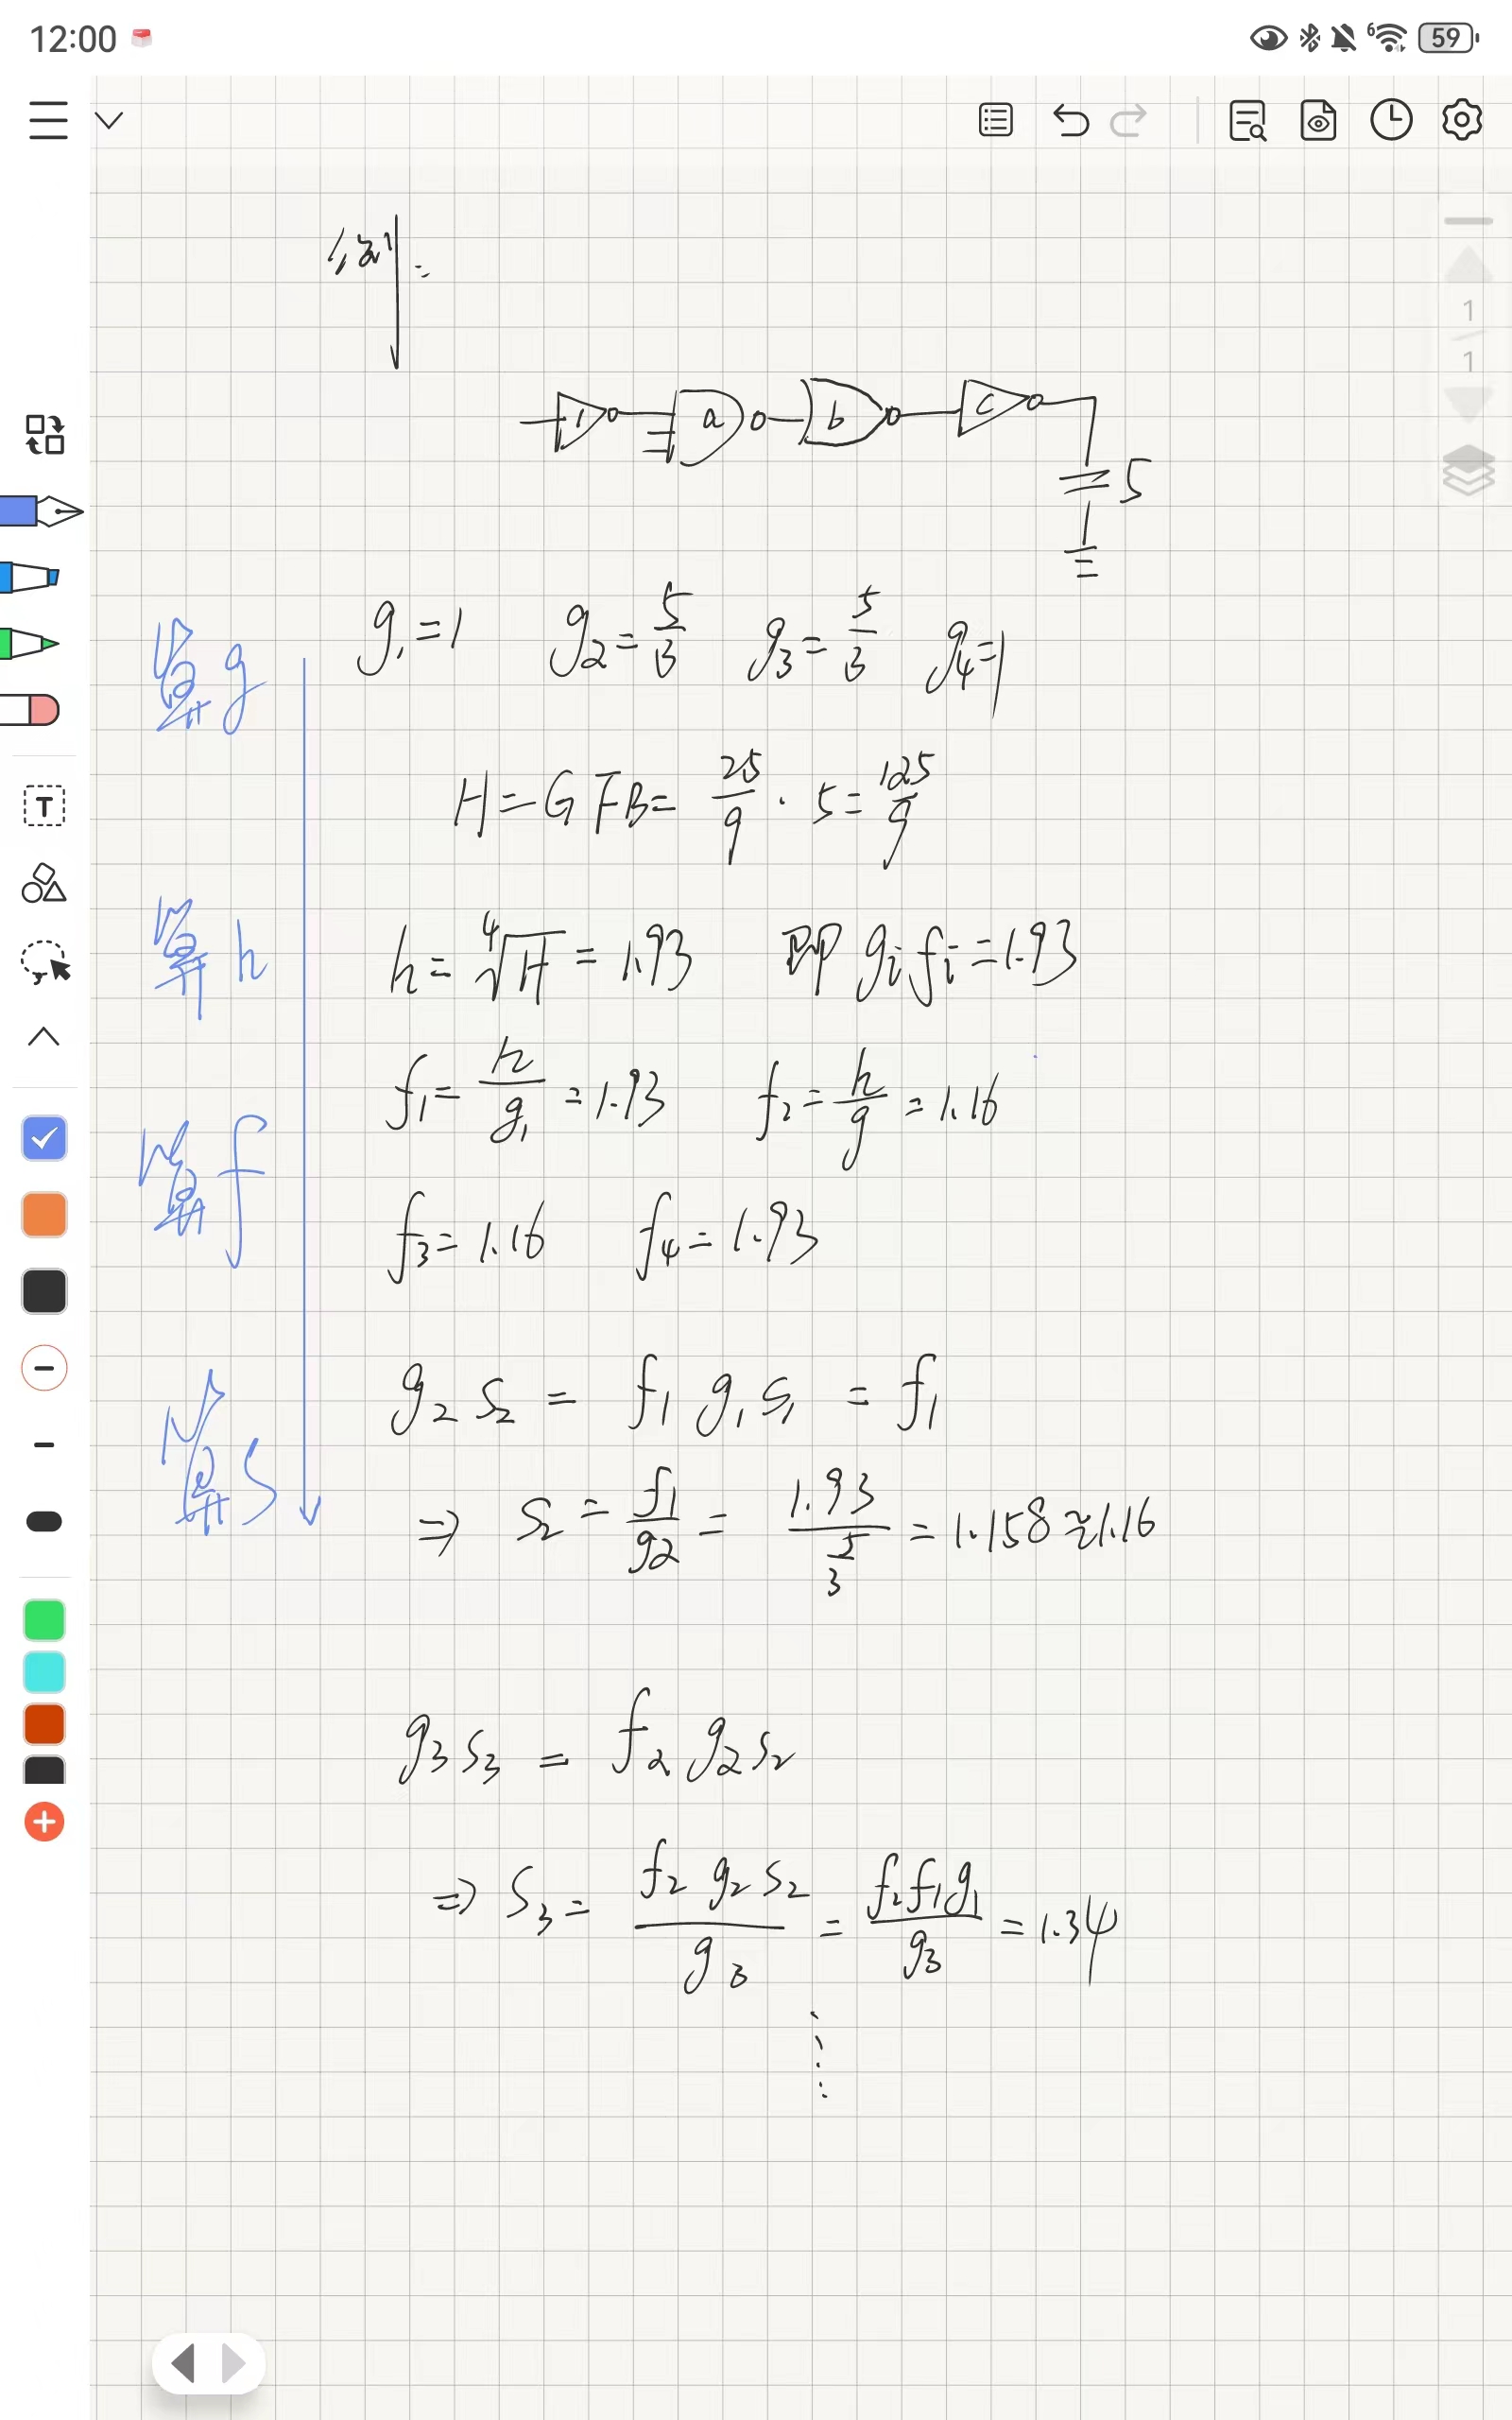 12:00 6 59
例:
1 a b c
5
算g g₁=1 g₂=5/3 g₃=5/3 g₄=1
H=GFB=25/9·5=125/9
算h h=⁴√H=1.93 即 gᵢfᵢ=1.93
算f f₁=h/g₁=1.93 f₂=h/g=1.16
f₃=1.16 f₄=1.93
g₂s₂=f₁g₁s₁=f₁
算S ⇒ S₂=f₁/g₂=1.93/(5/3)=1.158≈1.16
g₃s₃=f₂g₂s₂
⇒ S₃=f₂g₂s₂/g₃=f₂f₁g₁/g₃=1.34
⋮
T
1
1